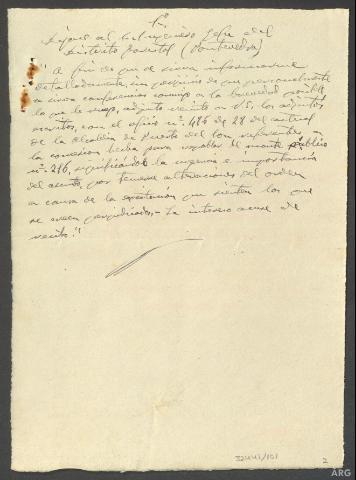 Dígase al Sr Ingeniero Jefe del
Distrito forestal (Pontevedra)
"A fin de que se sirva informarme
detalladamente, sin perjuicio de que personalmente
se sirva conferenciar conmigo a la brevedad posible
lo que le ruego, adjunto remito a V.S. los adjuntos
escritos, con el oficio nº 486 de 28 del actual
de la Alcaldía de Puerto del Son referentes
la concesión hecha para repoblar el monte público
nº 276, significándole la urgencia e importancia
del asunto por temerse alteraciones del orden
a causa de la excitación que sienten los que
se creen perjudicados.- Le intereso acuse de
recibo."
32441/101
2
ARG